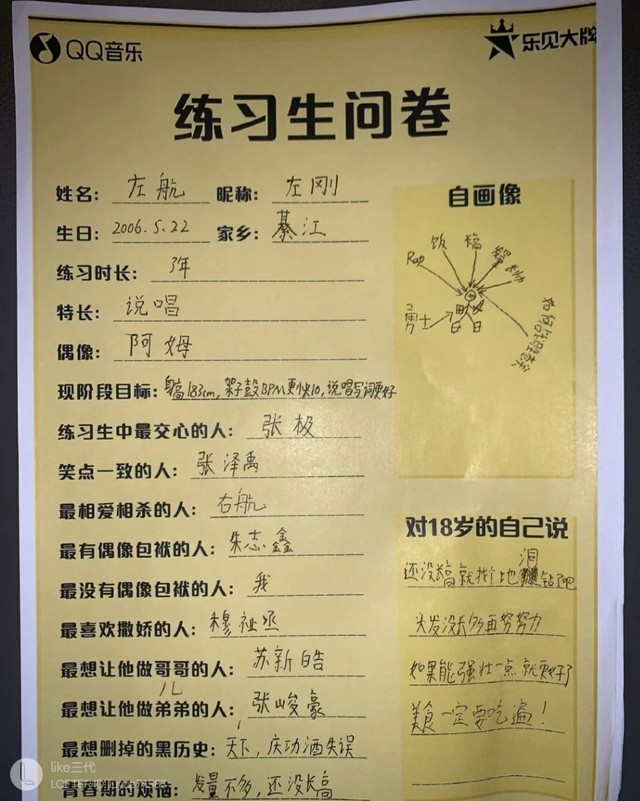 QQ音乐
乐见大牌
练习生问卷
姓名: 左航 昵称: 左刚
生日: 2006.5.22 家乡: 綦江
练习时长: 3年
特长: 说唱
偶像: 阿姆
现阶段目标: 身高183cm,架子鼓BPM更快10,说唱写词更好
练习生中最交心的人: 张极
笑点一致的人: 张泽禹
最相爱相杀的人: 右航
最有偶像包袱的人: 朱志鑫
最没有偶像包袱的人: 我
最喜欢撒娇的人: 穆祉丞
最想让他做哥哥的人: 苏新皓
最想让他做弟弟的人: 张峻豪
儿
最想删掉的黑历史: 天下,庆功酒失误
青春期的烦恼: 发量不多,还没长高
自画像
Rap
饭
搞
勇士
对18岁的自己说
还没长高就找个地洞钻了吧
头发没长多再努努力
如果能强壮一点就更好了
美食一定要吃遍!
like三代